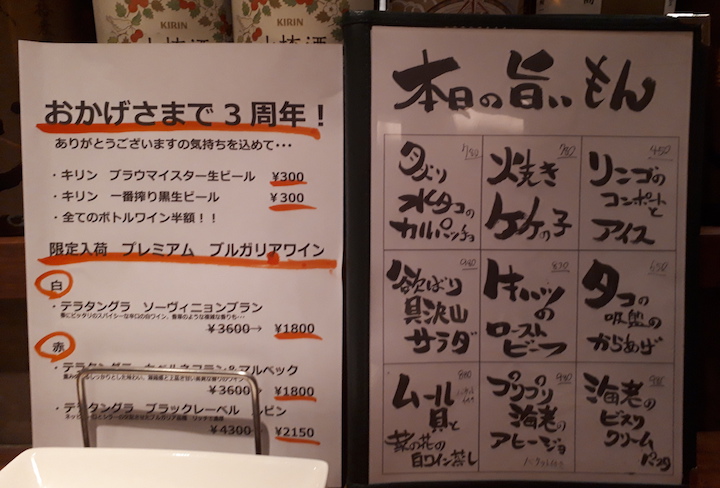 KIRIN
KIRIN
おかげさまで3周年！
ありがとうございますの気持ちを込めて・・・
・キリン　ブラウマイスター生ビール　¥300
・キリン　一番搾り黒生ビール　¥300
・全てのボトルワイン半額！！
限定入荷　プレミアム　ブルガリアワイン
白
・テラタングラ　ソーヴィニョンブラン
¥3600→　¥1800
赤
&マルベック
¥3600　¥1800
・テラタングラ　ブラックレーベル
¥4300　¥2150
本日の旨いもん
780
水タコの
カルパッチョ
780
焼き
450
リンゴの
コンポートと
アイス
欲ばり
具沢山
サラダ
ロースト
ビーフ
650
タコの
吸盤の
からあげ
ムール
貝と
菜の花の
白ワイン蒸し
プリプリ
海老の
アヒージョ
海老の
ビスク
クリーム
パスタ